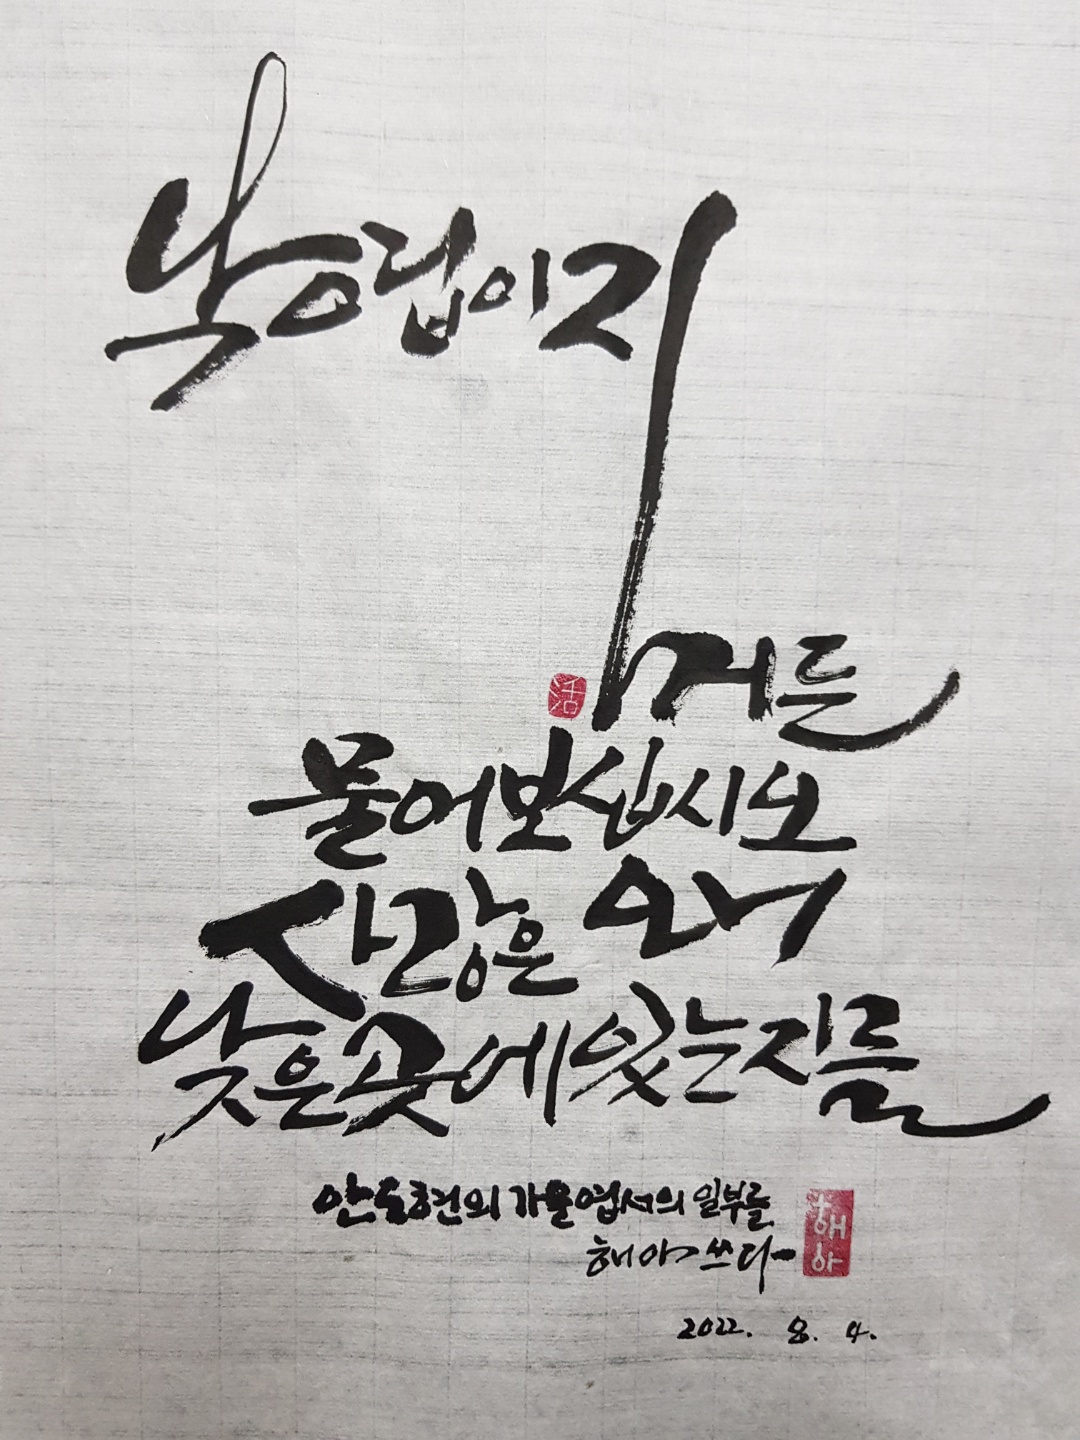 낙엽이 지
거든
活
물어보십시오
사랑은 왜
낮은 곳에 있는지를
안도현의 가을엽서의 일부를
해아 쓰다
해아
2022. 8. 4.